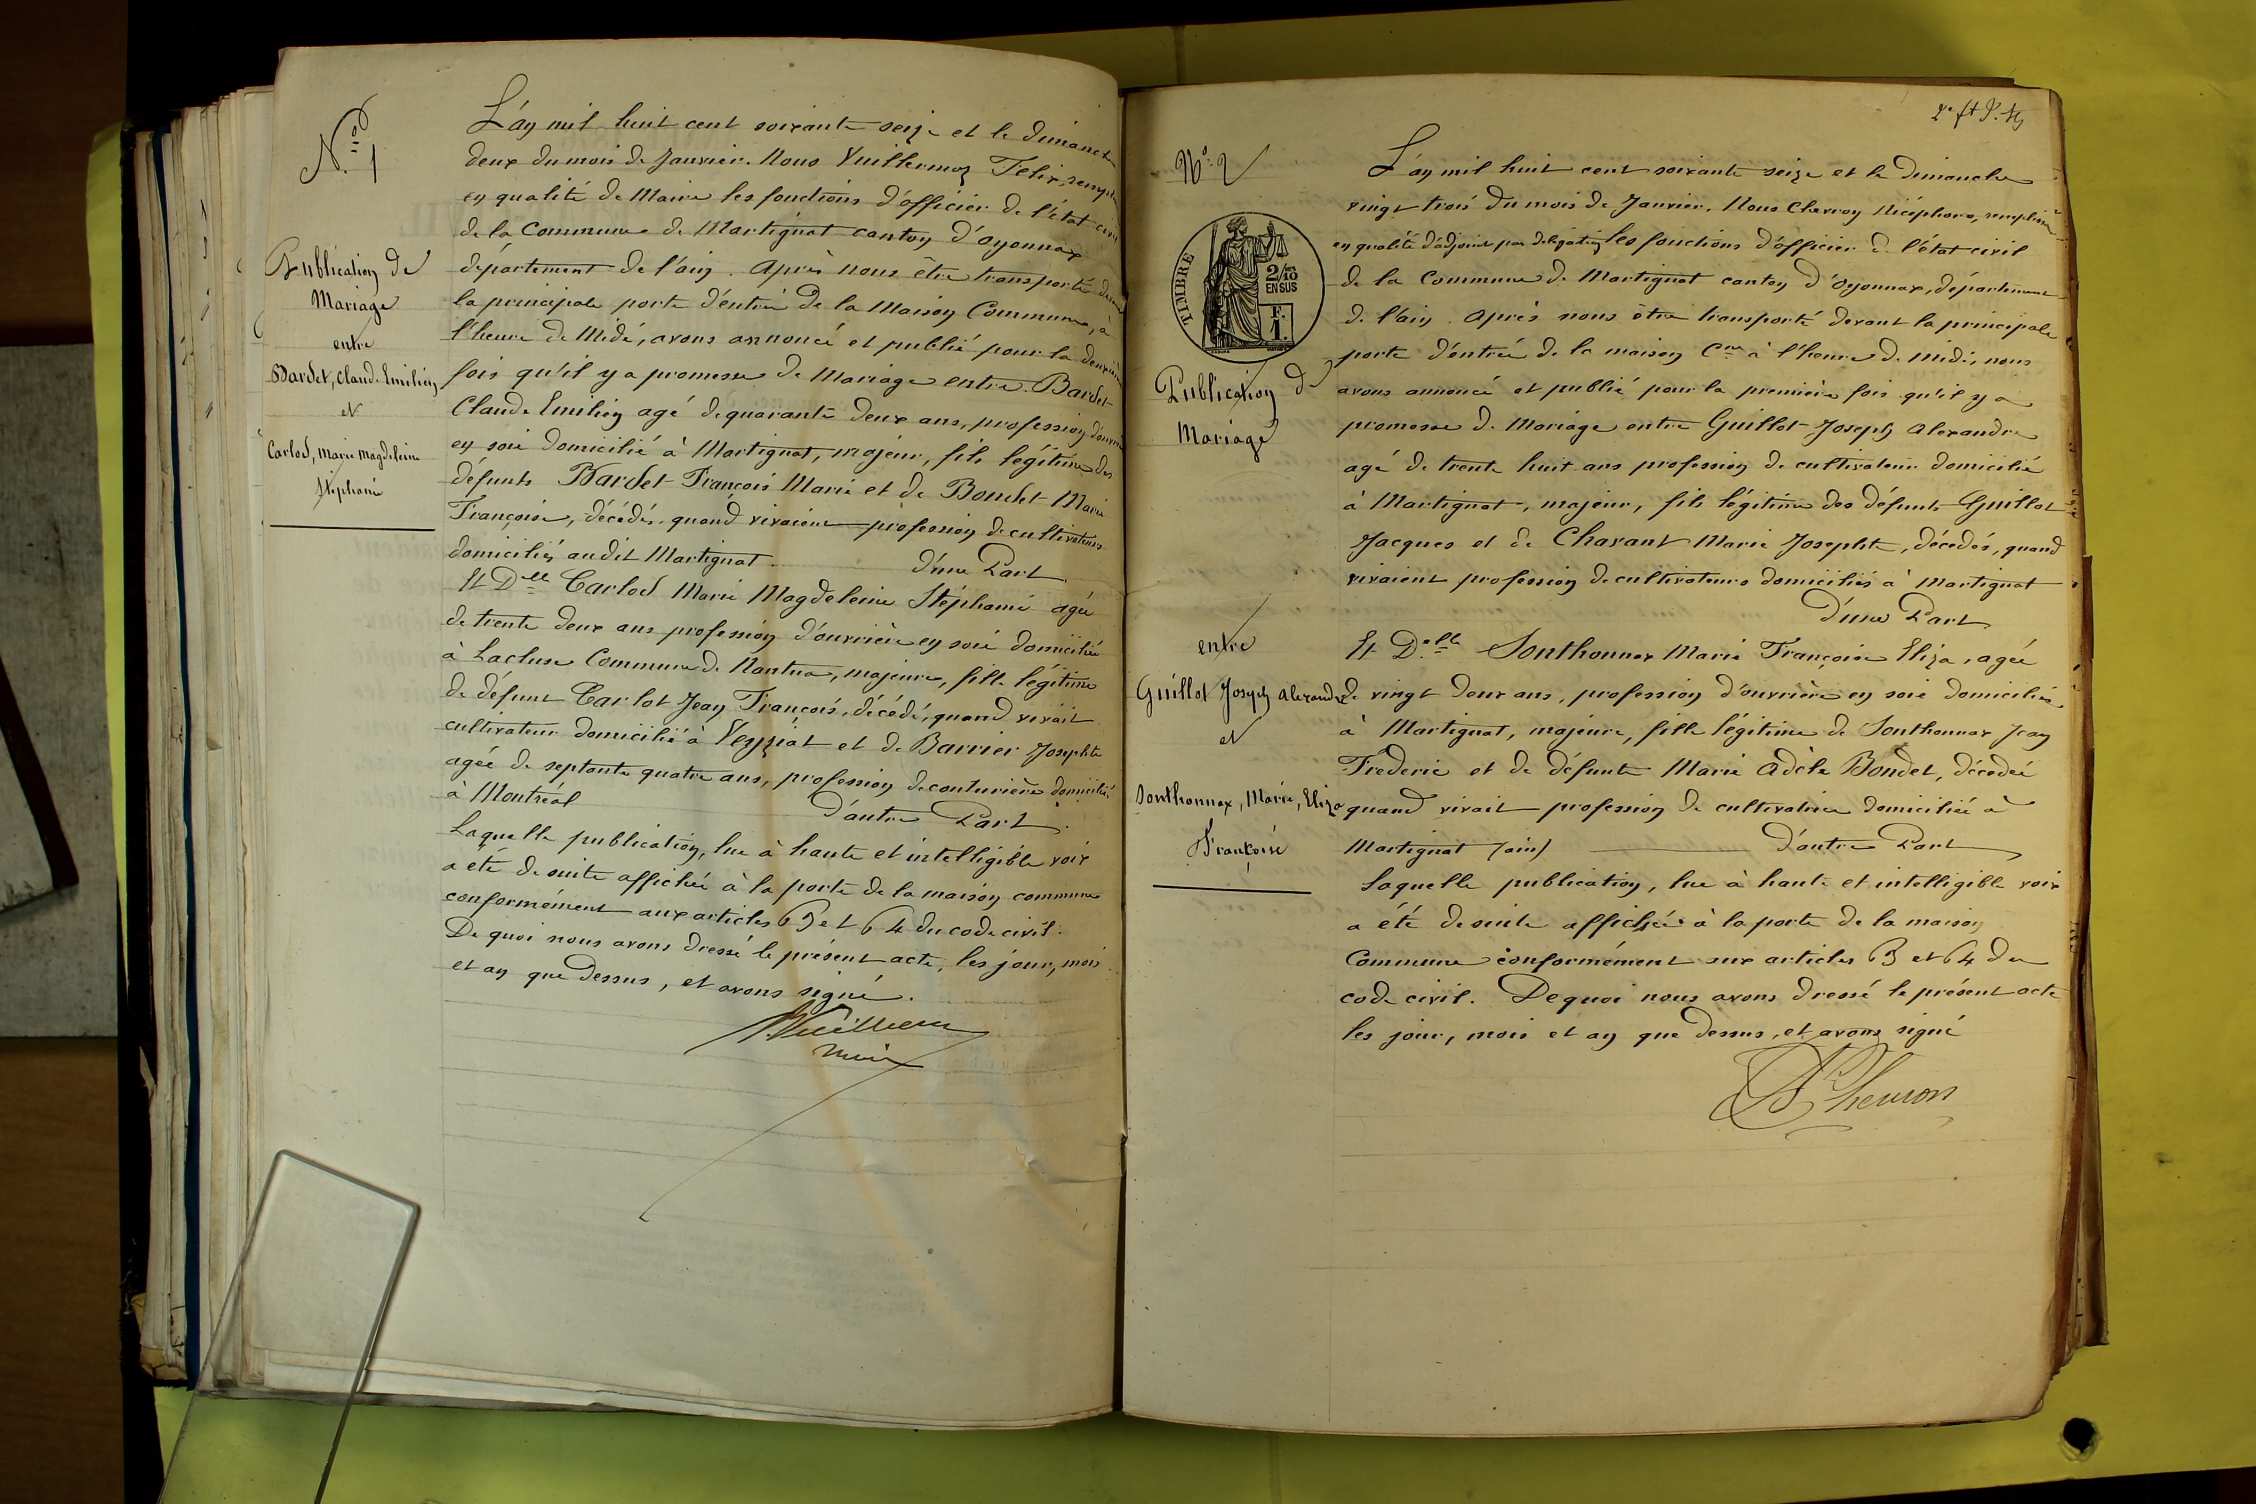 N.º 1
Publication de
Mariage
entre
Bardet, Claude Emilien
et
Carlod, Marie Magdeleine
Stéphanie
L'an mil huit cent soixante seize et le dimanche
deux du mois de Janvier. Nous Vuillermoz Félix, rempli
en qualité de Maire les fonctions d'officier de l'état civil
de la Commune de Martignat canton d'oyonnax
département de l'ain. Après nous être transporté devant
la principale porte d'entrée de la Maison Commune, à
l'heure de Midi, avons annoncé et publié pour la deuxième
fois qu'il y a promesse de Mariage entre Bardet
Claude Emilien agé de quarante deux ans, profession d'ouvrier
en soie domicilié à Martignat, majeur, fils légitime des
défunts Bardet François Marie et de Bondet Marie
Françoise, décédés, quand vivaient profession de cultivateurs
domiciliés audit Martignat d'une Part
Et Delle Carlod Marie Magdeleine Stéphanie agée
de trente deux ans profession d'ouvrière en soie domiciliée
à Lacluse Commune de Nantua, majeure, fille légitime
de défunt Carlot Jean François, décédé, quand vivait
cultivateur domicilié à Veyziat et de Barrier Josephte
agée de septante quatre ans, profession de couturière domiciliée
à Montréal d'autre Part.
Laquelle publication, lue à haute et intelligible voix
a été de suite affichée à la porte de la maison commune
conformément aux articles 63 et 64 du code civil.
De quoi nous avons dressé le présent acte, les jour, mois
et an que dessus, et avons signé.
maire
Nº 2
TIMBRE
2/10
EN SUS
F.
1.
Publication de
Mariage
entre
Guillot Joseph Alexandre
et
Sonthonnax, Marie, Eliza
Françoise
L'an mil huit cent soixante seize et le dimanche
vingt trois du mois de Janvier. Nous Chevron Nicéphore, remplissant
en qualité d'adjoint par délégation les fonctions d'officier de l'état civil
de la Commune de Martignat canton d'oyonnax, département
de l'ain. Après nous être transporté devant la principale
porte d'entrée de la maison Cne à l'heure de midi, nous
avons annoncé et publié pour la première fois qu'il y a
promesse de Mariage entre Guillot Joseph Alexandre
agé de trente huit ans profession de cultivateur domicilié
à Martignat, majeur, fils légitime des défunts Guillot
Jacques et de Chavant Marie Josephte, décédés, quand
vivaient profession de cultivateurs domiciliés à Martignat
D'une Part
Et Delle Sonthonnax Marie Françoise Eliza, agée
de vingt deux ans, profession d'ouvrière en soie domiciliée
à Martignat, majeure, fille légitime de Sonthonnax Jean
Fréderic et de défunte Marie Adèle Bondet, décedée
quand vivait profession de cultivatrice domiciliée à
Martignat (ain) d'autre Part
Laquelle publication, lue à haute et intelligible voix
a été de suite affichée à la porte de la maison
Commune conformément aux articles 63 et 64 du
code civil. De quoi nous avons dressé le présent acte
les jour, mois et an que dessus, et avons signé
Chevron